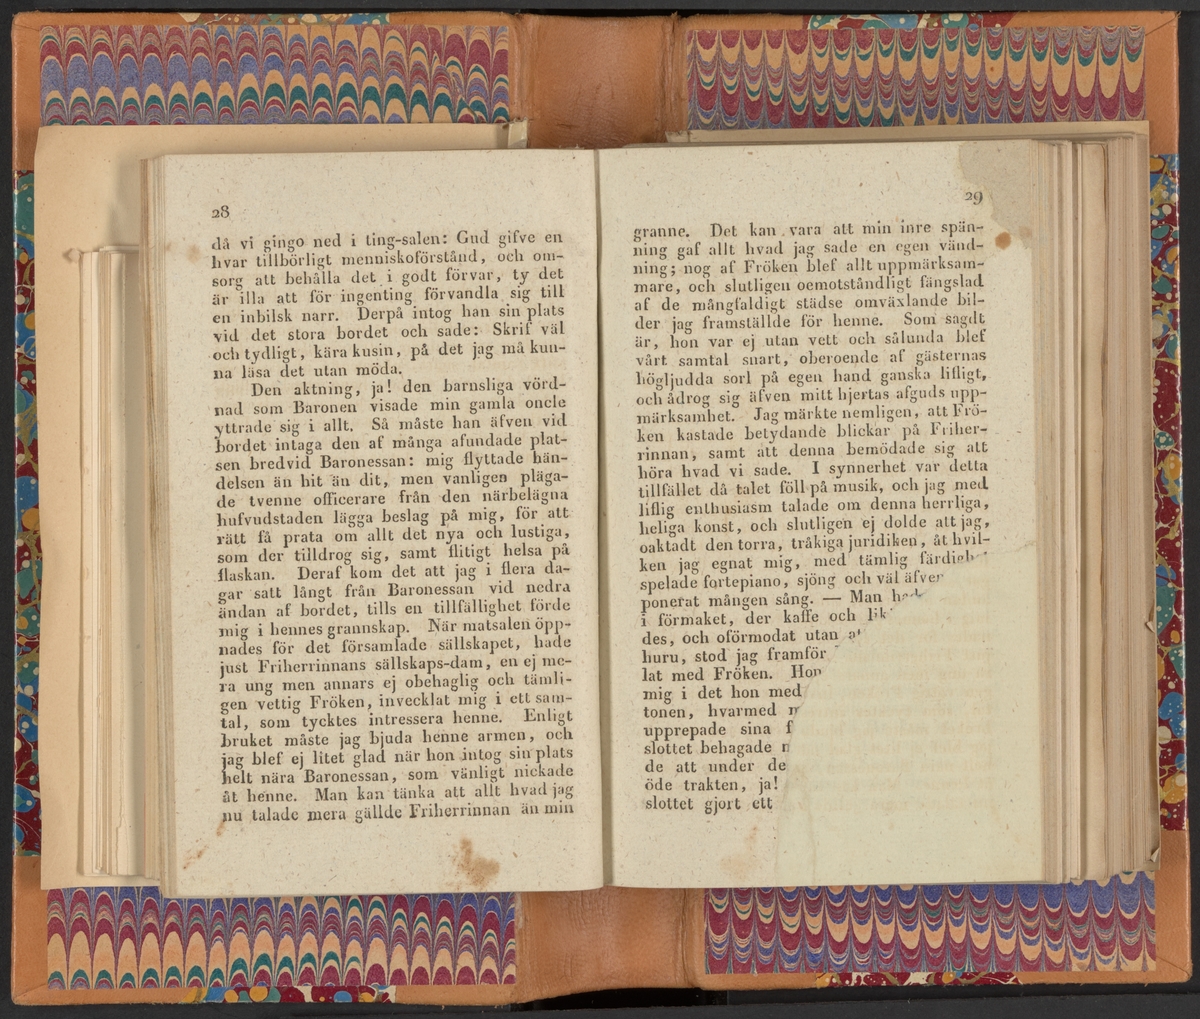 28
då vi gingo ned i ting-salen: Gud gifve en
hvar tillbörligt menniskoförstånd, och om-
sorg att behålla det i godt förvar, ty det
är illa att för ingenting förvandla sig till
en inbilsk narr. Derpå intog han sin plats
vid det stora bordet och sade: Skrif väl
och tydligt, kära kusin, på det jag må kun-
na läsa det utan möda.
Den aktning, ja! den barnsliga vörd-
nad som Baronen visade min gamla oncle
yttrade sig i allt. Så måste han äfven vid
bordet intaga den af många afundade plat-
sen bredvid Baronessan: mig flyttade hän-
delsen än hit än dit, men vanligen pläga-
de tvenne officerare från den närbelägna
hufvudstaden lägga beslag på mig, för att
rätt få prata om allt det nya och lustiga,
som der tilldrog sig, samt flitigt helsa på
flaskan. Deraf kom det att jag i flera da-
gar satt långt från Baronessan vid nedra
ändan af bordet, tills en tillfällighet förde
mig i hennes grannskap. När matsalen öpp-
nades för det församlade sällskapet, hade
just Friherrinnans sällskaps-dam, en ej me-
ra ung men annars ej obehaglig och tämli-
gen vettig Fröken, invecklat mig i ett sam-
tal, som tycktes intressera henne. Enligt
bruket måste jag bjuda henne armen, och
jag blef ej litet glad när hon intog sin plats
helt nära Baronessan, som vänligt nickade
åt henne. Man kan tänka att allt hvad jag
nu talade mera gällde Friherrinnan än min
29
granne. Det kan vara att min inre spän-
ning gaf allt hvad jag sade en egen vänd-
ning; nog af Fröken blef allt uppmärksam-
mare, och slutligen oemotståndligt fängslad
af de mångfaldigt städse omväxlande bil-
der jag framställde för henne. Som sagdt
är, hon var ej utan vett och sålunda blef
vårt samtal snart, oberoende af gästernas
högljudda sorl på egen hand ganska lifligt,
och ådrog sig äfven mitt hjertas afguds upp-
märksamhet. Jag märkte nemligen, att Frö-
ken kastade betydande blickar på Friher-
rinnan, samt att denna bemödade sig att
höra hvad vi sade. I synnerhet var detta
tillfället då talet föll på musik, och jag med
liflig enthusiasm talade om denna herrliga,
heliga konst, och slutligen ej dolde att jag,
oaktadt den torra, tråkiga juridiken, åt hvil-
ken jag egnat mig, med tämlig färdighet
spelade fortepiano, sjöng och väl äfven
ponerat mången sång. — Man had
i förmaket, der kaffe och lik
des, och oförmodat utan at
huru, stod jag framför
lat med Fröken. Hon
mig i det hon med
tonen, hvarmed
upprepade sina f
slottet behagade
de att under de
öde trakten, ja!
slottet gjort ett